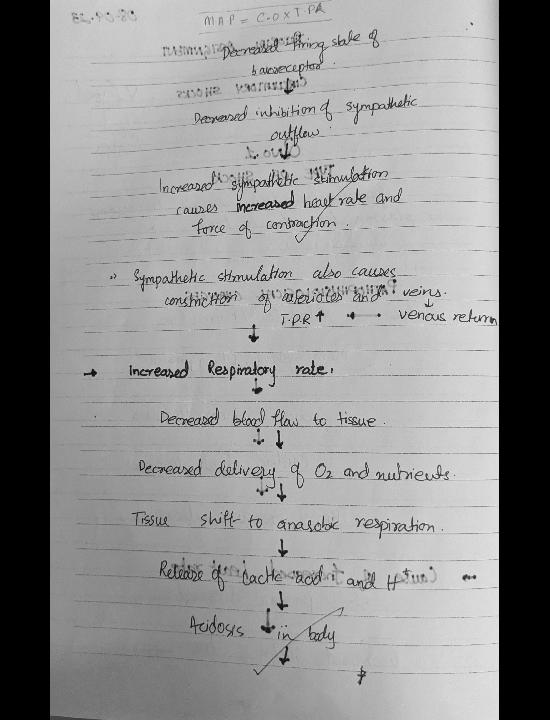 MAP = C.O X T.PR
Decreased firing state of
baroreceptor
Decreased inhibition of sympathetic
outflow
Increased sympathetic stimulation
causes increased heart rate and
force of contraction.
Sympathetic stimulation also causes
constriction of arterioles and veins.
T.P.R ↑ venous return
→ Increased Respiratory rate.
Decreased blood flow to tissue.
Decreased delivery of O2 and nutrients.
Tissue shift to anaerobic respiration.
Release of lactic acid and H+
Acidosis in body